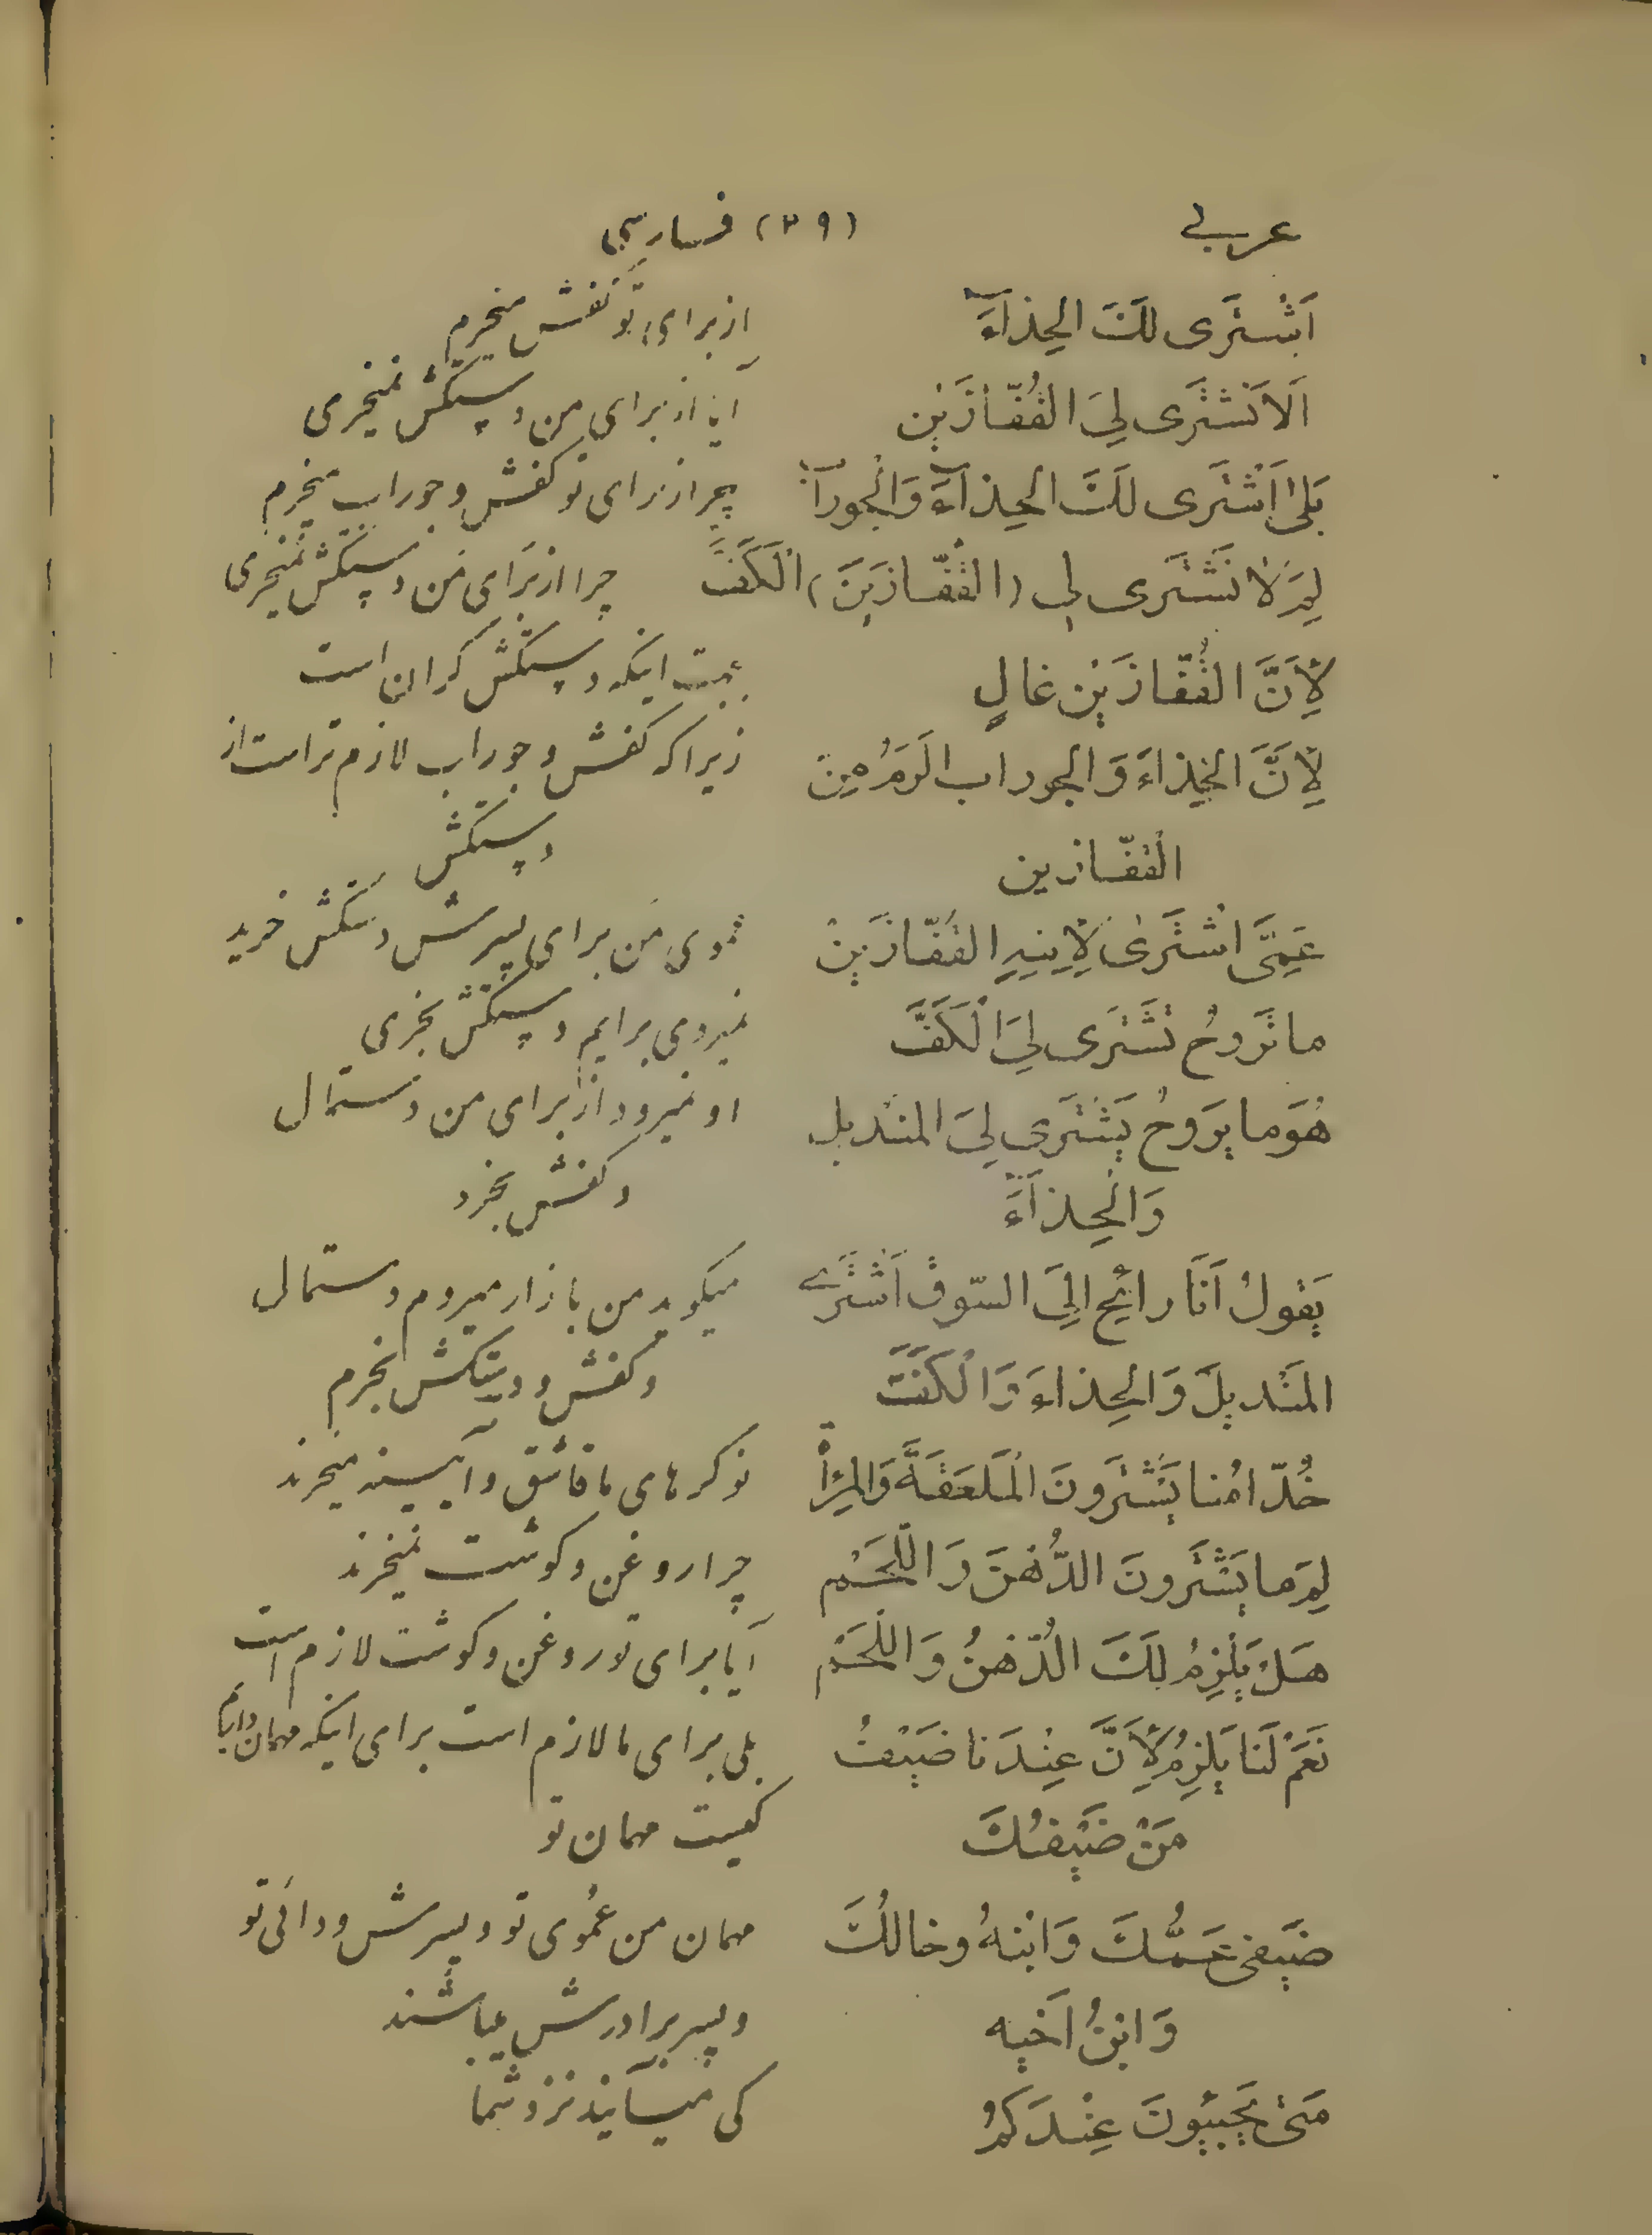 عربی (۳۹) فارسی
اَشْتَری لَكَ الحِذآءَ از برای تو کفش میخرم
اَلاتَشْتَری لِیَ القُفّازَیْنِ آیا از برای من دستکش نمیخری
بَلیٰ اَشْتَری لَكَ الحِذآءَ وَالْجورآبَ چرا از برای تو کفش و جوراب میخرم
لِمَ لاٰ تَشْتَری لی (القُفّازَیَنَ) الْكَفَّ چرا از برای من دستکش نمیخری
لِأَنَّ القُفّازَیْنِ غالٍ بجهت اینکه دستکش کران است
لِأَنَّ الحِذاءَ وَالجوراب اَلزَمُ مِنَ زیرا که کفش و جوراب لازم تر است از
القفّازین دستکش
عَمِّی اشْتَریٰ لِاِبنِهِ القُفّازَیْنِ عموی من برای پسرش دستکش خرید
ما تَروحُ تَشْتَری لِیَ الْكَفَّ نمیروی برایم دستکش بخری
هُوَ ما یَروحُ یَشْتَری لِیَ المندیل او نمیرود از برای من دستمال
وَالْحِذآءَ و کفش بخرد
یَقولُ اَنَا رائِح اِلَی السّوق اَشْتَری میکوید من بازار میروم دستمال
المَنْدیلَ وَالحِذاءَ وَالْكَفَّ و کفش و دستکش بخرم
خُدّامُنا یَشْتَرونَ الْمَلعَقَةَ وَالمِرْاٰةَ نوکرهای ما قاشق و آیینه میخرند
لِمَ ما یَشْتَرونَ الدُّهْنَ وَ اللَّحْم چرا روغن و کوشت نمیخرند
هَلْ یَلْزِمُ لَكَ الدُّهْنُ وَ اللَّحْم آیا برای تو روغن و کوشت لازم است
نَعَمْ لَنا یَلزِمُ لِأَنَّ عِنْدَنا ضَیْفٌ بلی برای ما لازم است برای اینکه مهمان داریم
مَنْ ضَیْفُكَ کیست مهمان تو
ضَیفی عَمُّكَ وَ ابْنهُ و خالُكَ مهمان من عموی تو و پسرش و دائی تو
وَ ابْنُ اَخیه و پسر برادرش میباشند
مَتیٰ یَجیئونَ عِنْدَكُمْ کی میآیند نزد شما